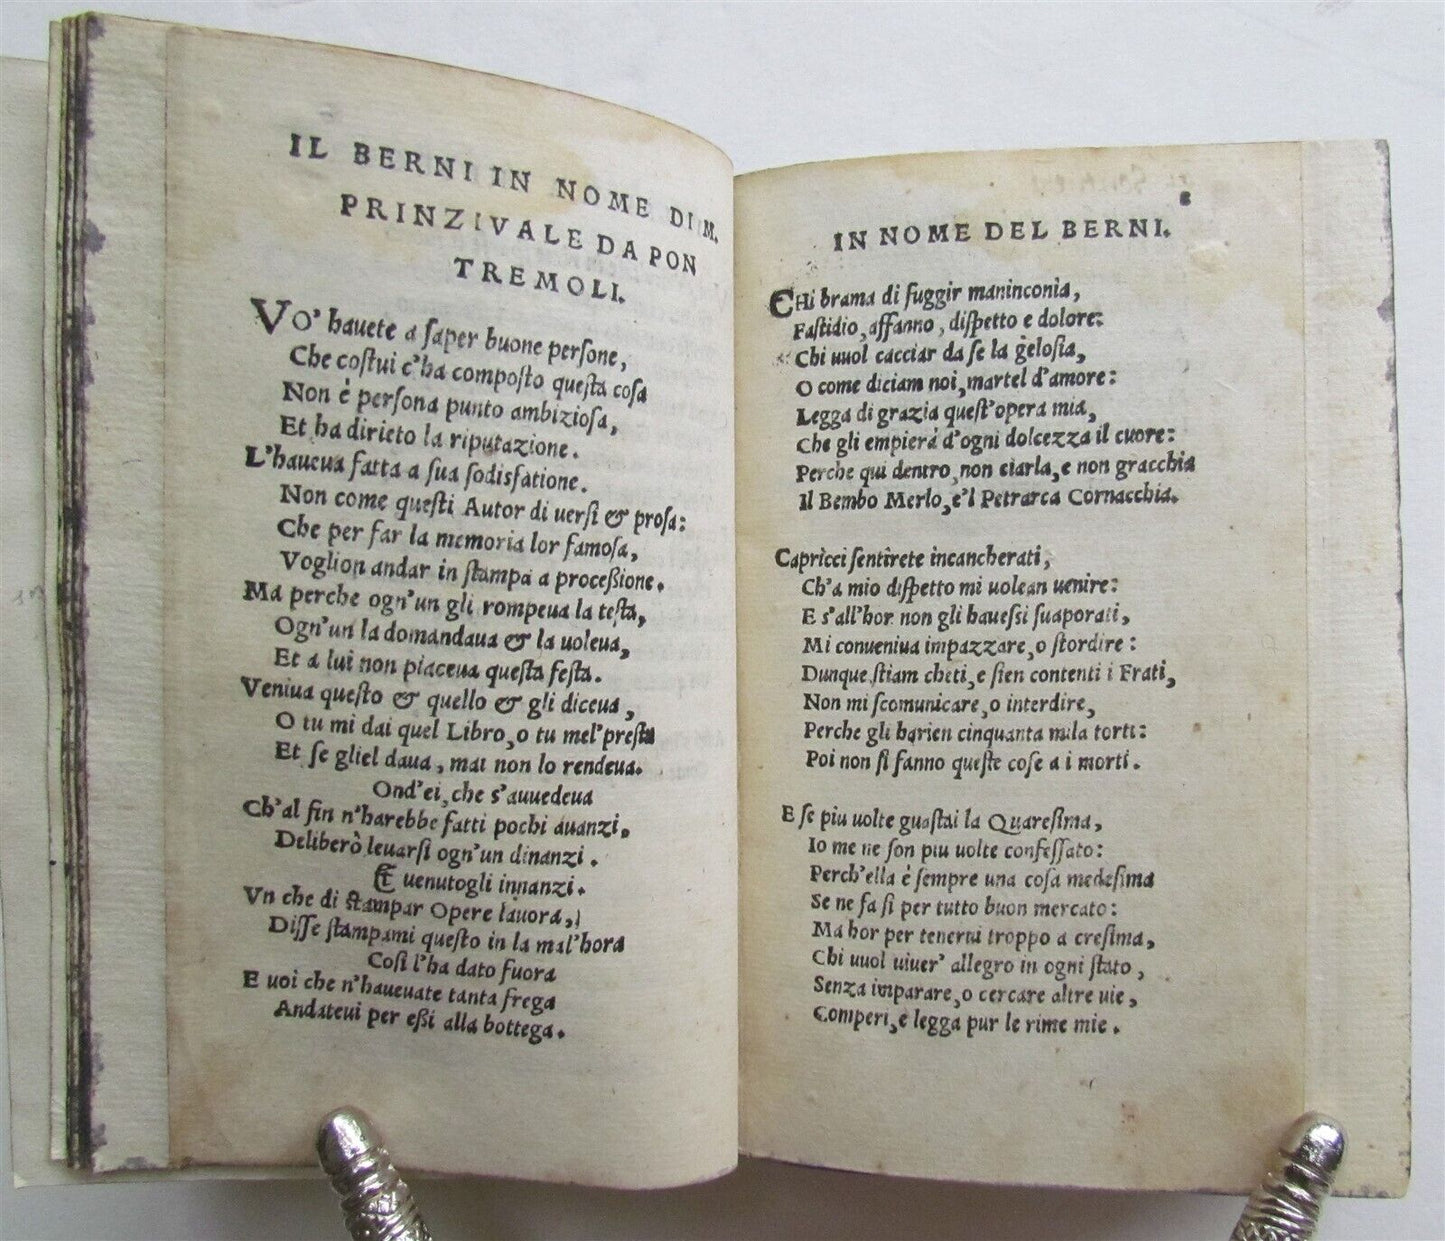 IL BERNI IN NOME DI M.
PRINZIVALE DA PON
TREMOLI.
VO' hauete a ſaper buone perſone,
Che coſtui c'ha compoſto queſta coſa
Non è perſona punto ambizioſa,
Et ha dirieto la riputazione.
L'haueua fatta a ſua ſodisfatione.
Non come queſti Autor di uerſi & proſa:
Che per far la memoria lor famoſa,
Voglion andar in ſtampa a proceßione.
Ma perche ogn'un gli rompeua la teſta,
Ogn'un la domandaua & la uoleua,
Et a lui non piaceua queſta feſta.
Veniua queſto & quello & gli diceua,
O tu mi dai quel Libro, o tu mel'preſta
Et ſe gliel daua, mai non lo rendeua.
Ond'ei, che s'auuedeua
Ch'al fin n'harebbe fatti pochi auanzi,
Deliberò leuarſi ogn'un dinanzi.
Et uenutogli innanzi.
Vn che di ſtampar Opere lauora,
Diſſe ſtampami queſto in la mal'hora
Coſi l'ha dato fuora
E uoi che n'haueuate tanta frega
Andateui per eßi alla bottega.
8
IN NOME DEL BERNI.
CHi brama di fuggir maninconia,
Faſtidio, affanno, diſpetto e dolore:
Chi uuol cacciar da ſe la geloſia,
O come diciam noi, martel d'amore:
Legga di grazia queſt'opera mia,
Che gli empierà d'ogni dolcezza il cuore:
Perche qui dentro, non ciarla, e non gracchia
Il Bembo Merlo, e'l Petrarca Cornacchia.
Capricci ſentirete incancherati,
Ch'a mio diſpetto mi uolean uenire:
E s'all'hor non gli haueſsi ſuaporati,
Mi conueniua impazzare, o ſtordire:
Dunque ſtiam cheti, e ſien contenti i Frati,
Non mi ſcomunicare, o interdire,
Perche gli harien cinquanta mila torti:
Poi non ſi fanno queſte coſe a i morti.
E ſe piu uolte guaſtai la Quareſima,
Io me ne ſon piu uolte confeſſato:
Perch'ella è ſempre una coſa medeſima
Se ne fa ſi per tutto buon mercato:
Ma hor per tenerui troppo a creſima,
Chi uuol uiuer' allegro in ogni ſtato,
Senza imparare, o cercare altre uie,
Comperi, e legga pur le rime mie.